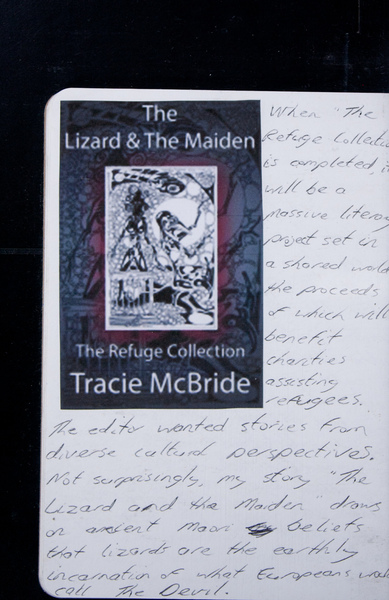 The
Lizard & The Maiden
The Refuge Collection
Tracie McBride
When "The
Refuge Collectio
is completed, it
will be a
massive literary
project set in
a shared world
the proceeds
of which will
benefit
charities
assisting
refugees.
The editor wanted stories from
diverse cultural perspectives.
Not surprisingly, my story "The
Lizard and the Maiden" draws
on ancient Maori beliefs
that lizards are the earthly
incarnation of what Europeans would
call The Devil.